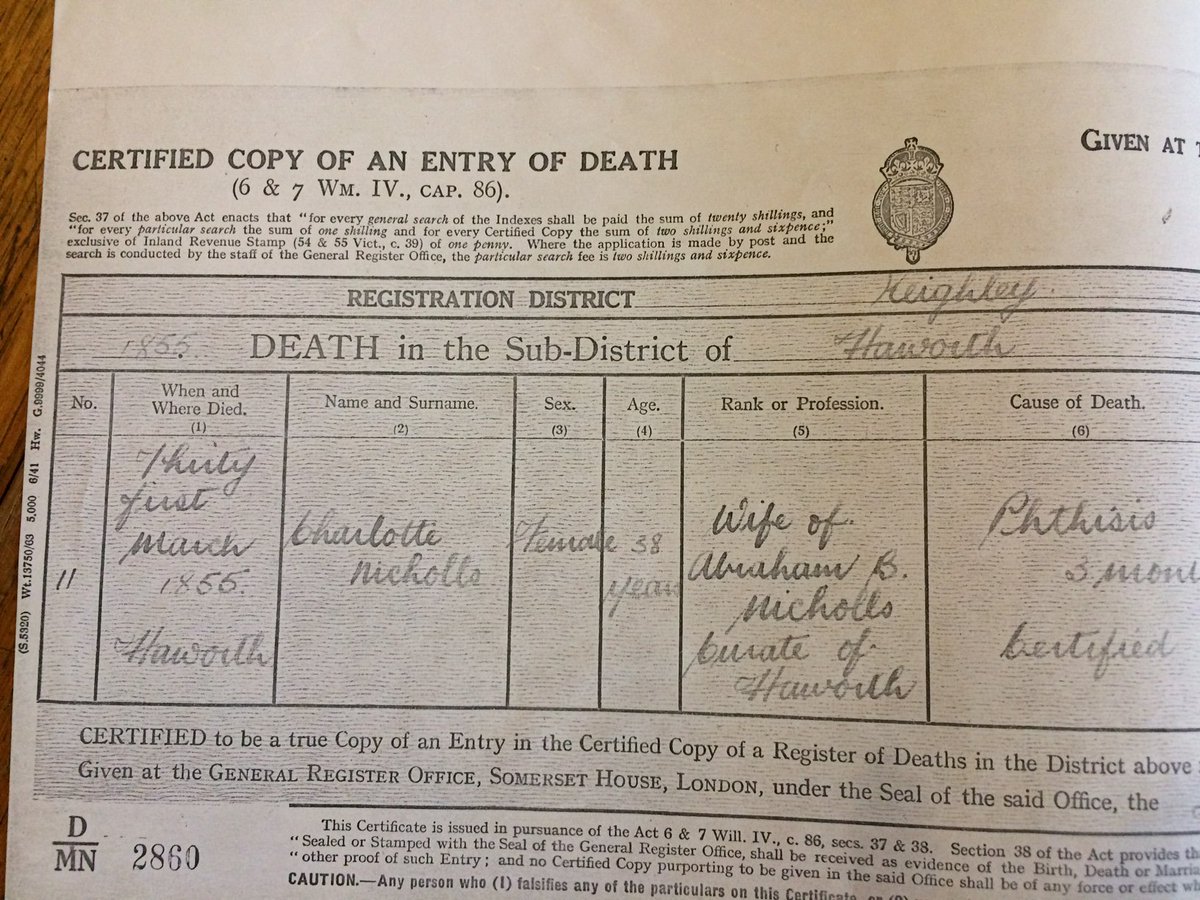 CERTIFIED COPY OF AN ENTRY OF DEATH
(6 & 7 WM. IV., CAP. 86).
GIVEN AT
Sec. 37 of the above Act enacts that "for every general search of the Indexes shall be paid the sum of twenty shillings, and
"for every particular search the sum of one shilling and for every Certified Copy the sum of two shillings and sixpence;"
exclusive of Inland Revenue Stamp (54 & 55 Vict., c. 39) of one penny. Where the application is made by post and the
search is conducted by the staff of the General Register Office, the particular search fee is two shillings and sixpence.
REGISTRATION DISTRICT Keighley
1855. DEATH in the Sub-District of Haworth
No.
When and
Where Died.
(1)
Name and Surname.
(2)
Sex.
(3)
Age.
(4)
Rank or Profession.
(5)
Cause of Death.
(6)
11
Thirty
first
March
1855.
Haworth
Charlotte
Nicholls
Female
38
years
Wife of
Abraham B.
Nicholls
Curate of
Haworth
Phthisis
Certified
CERTIFIED to be a true Copy of an Entry in the Certified Copy of a Register of Deaths in the District above
Given at the GENERAL REGISTER OFFICE, SOMERSET HOUSE, LONDON, under the Seal of the said Office, the
D
MN 2860
This Certificate is issued in pursuance of the Act 6 & 7 Will. IV., c. 86, secs. 37 & 38. Section 38 of the Act provides
"Sealed or Stamped with the Seal of the General Register Office, shall be received as evidence of the Birth, Death or
"other proof of such Entry; and no Certified Copy purporting to be given in the said Office shall be of any force or effect
CAUTION.—Any person who (1) falsifies any of the particulars on this
(S.5320) Wt.13750/63 5,000 6/41 Hw. G.9999/4044